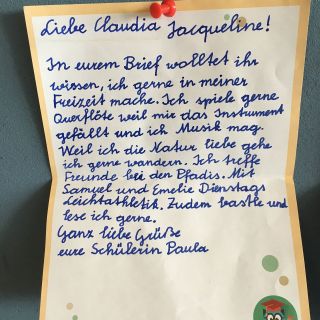 Liebe Claudia Jacqueline!
In eurem Brief wolltet ihr
wissen, ich gerne in meiner
Freizeit mache. Ich spiele gerne
Querflöte weil mir das Instrument
gefällt und ich Musik mag.
Weil ich die Natur liebe gehe
ich gerne wandern. Ich treffe
Freunde bei den Pfadis. Mit
Samuel und Emelie Dienstags
Leichtathletik. Zudem bastle und
lese ich gerne.
Ganz liebe Grüße
eure Schülerin Paula